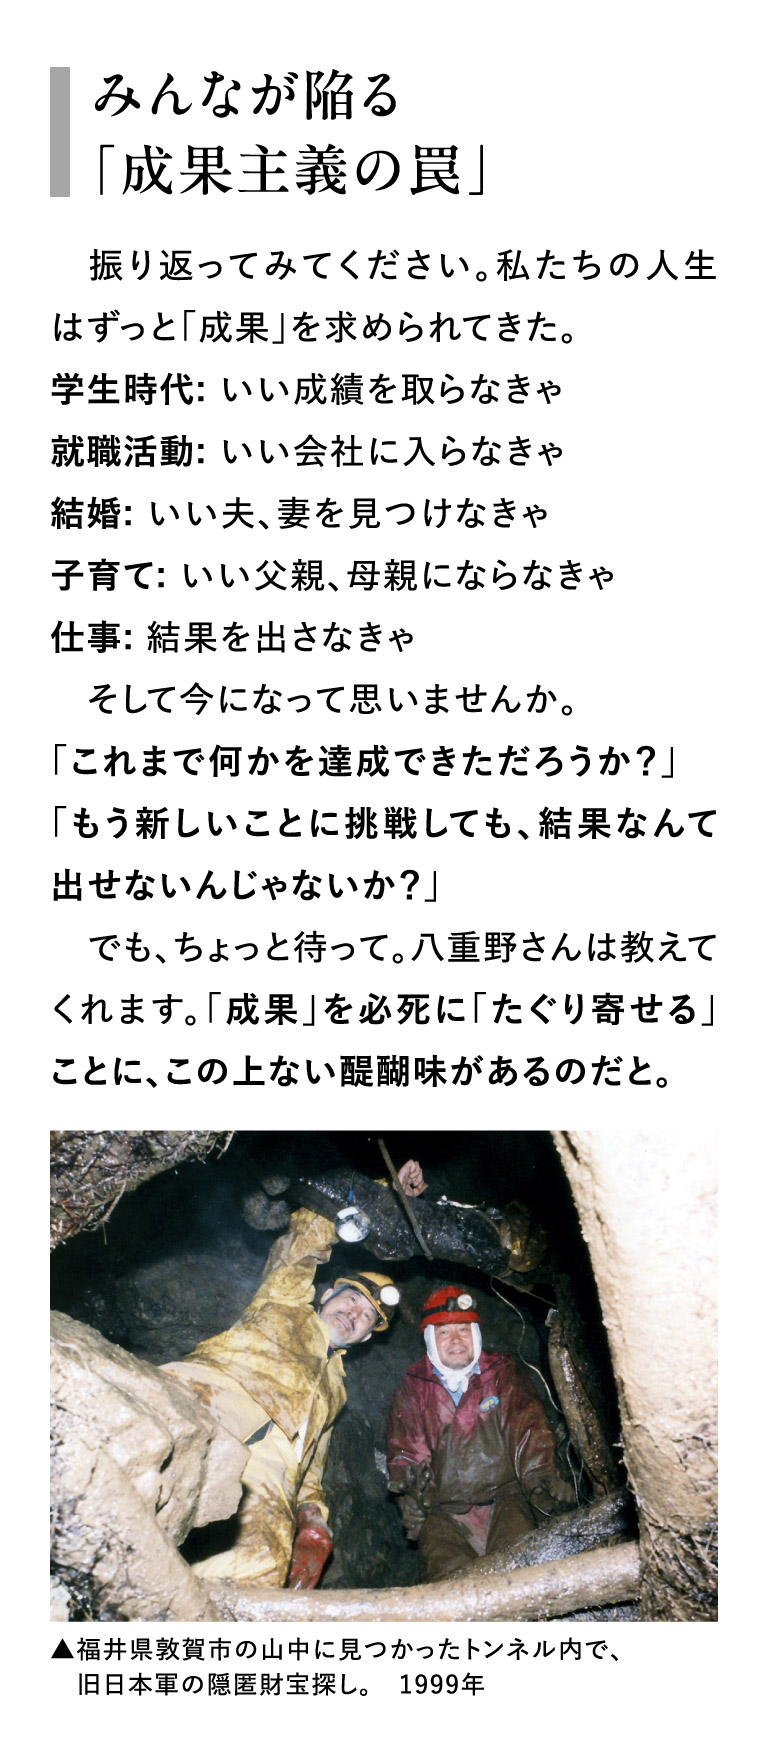 みんなが陥る
「成果主義の罠」
振り返ってみてください。私たちの人生
はずっと「成果」を求められてきた。
学生時代: いい成績を取らなきゃ
就職活動: いい会社に入らなきゃ
結婚: いい夫、妻を見つけなきゃ
子育て: いい父親、母親にならなきゃ
仕事: 結果を出さなきゃ
そして今になって思いませんか。
「これまで何かを達成できただろうか？」
「もう新しいことに挑戦しても、結果なんて
出せないんじゃないか？」
でも、ちょっと待って。八重野さんは教えて
くれます。「成果」を必死に「たぐり寄せる」
ことに、この上ない醍醐味があるのだと。
▲福井県敦賀市の山中に見つかったトンネル内で、
旧日本軍の隠匿財宝探し。　1999年